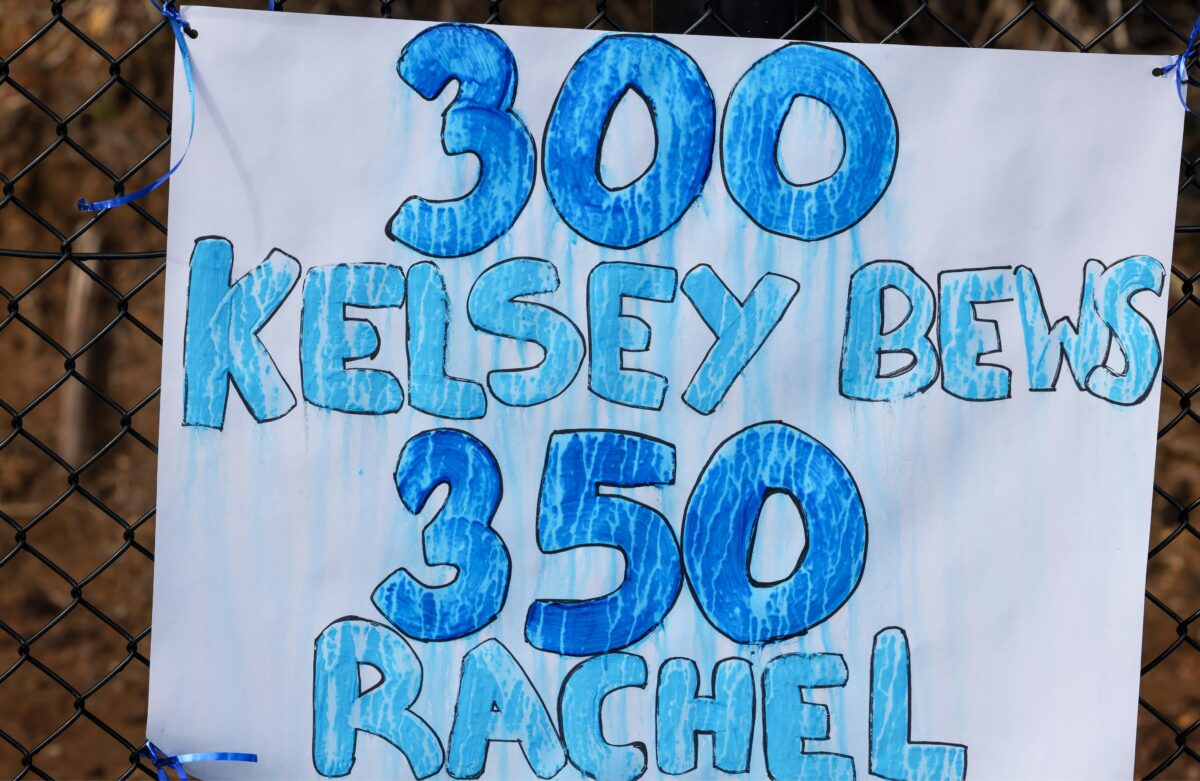 300
KELSEY BEWS
350
RACHEL